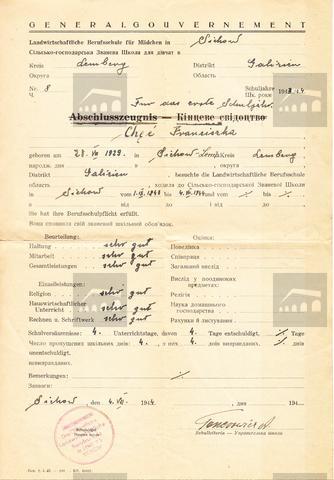 GENERALGOUVERNEMENT
Landwirtschaftliche Berufsschule für Mädchen in Sichow
Сільсько-господарська Званева Школа для дівчат в
Kreis Lemberg Distrikt Galizien
Округа Область
Nr. 8 Schuljahre 1943/44
Ч. Шк. роки
Fur das erste Schuljahr
Abschlusszeugnis — Кінцеве свідоцтво
Chęć Franciszka
geboren am 28 VII 1929. in Sichow Lemp. Kreis Lemberg
народж. дня в Округа
Distrikt Galizien, besuchte die Landwirtschaftliche Berufsschule
область ходила до Сільсько-господарської Званевої Школи
in Sichow vom 1.IX.1943 bis 4.VII.1944
в від до і від до
Sie hat ihre Berufsschulpflicht erfüllt.
Вона сповнила свій званевий шкільний обов'язок.
Beurteilung: Оцінка:
Haltung sehr gut Поведінка
Mitarbeit sehr gut Співпраця
Gesamtleistungen sehr gut Загальний вислід
Einzelleistungen: Вислід у поодиноких предметах:
Religion sehr gut Релігія
Hauswirtschaftlicher Unterricht sehr gut Наука домашнього господарства
Rechnen u. Schriftwerk sehr gut Рахунки й листування
Schulversäumnisse: 4. Unterrichtstage, davon 4. Tage entschuldigt, Tage
Число пропущених шкільних днів: 4. з чого днів виправданих, днів
unentschuldigt.
невиправданих.
Bemerkungen:
Заваги
Sichow, den 4. VII. 1944. дня 194
Schulsiegel
Schulleiterin — Управителька школи